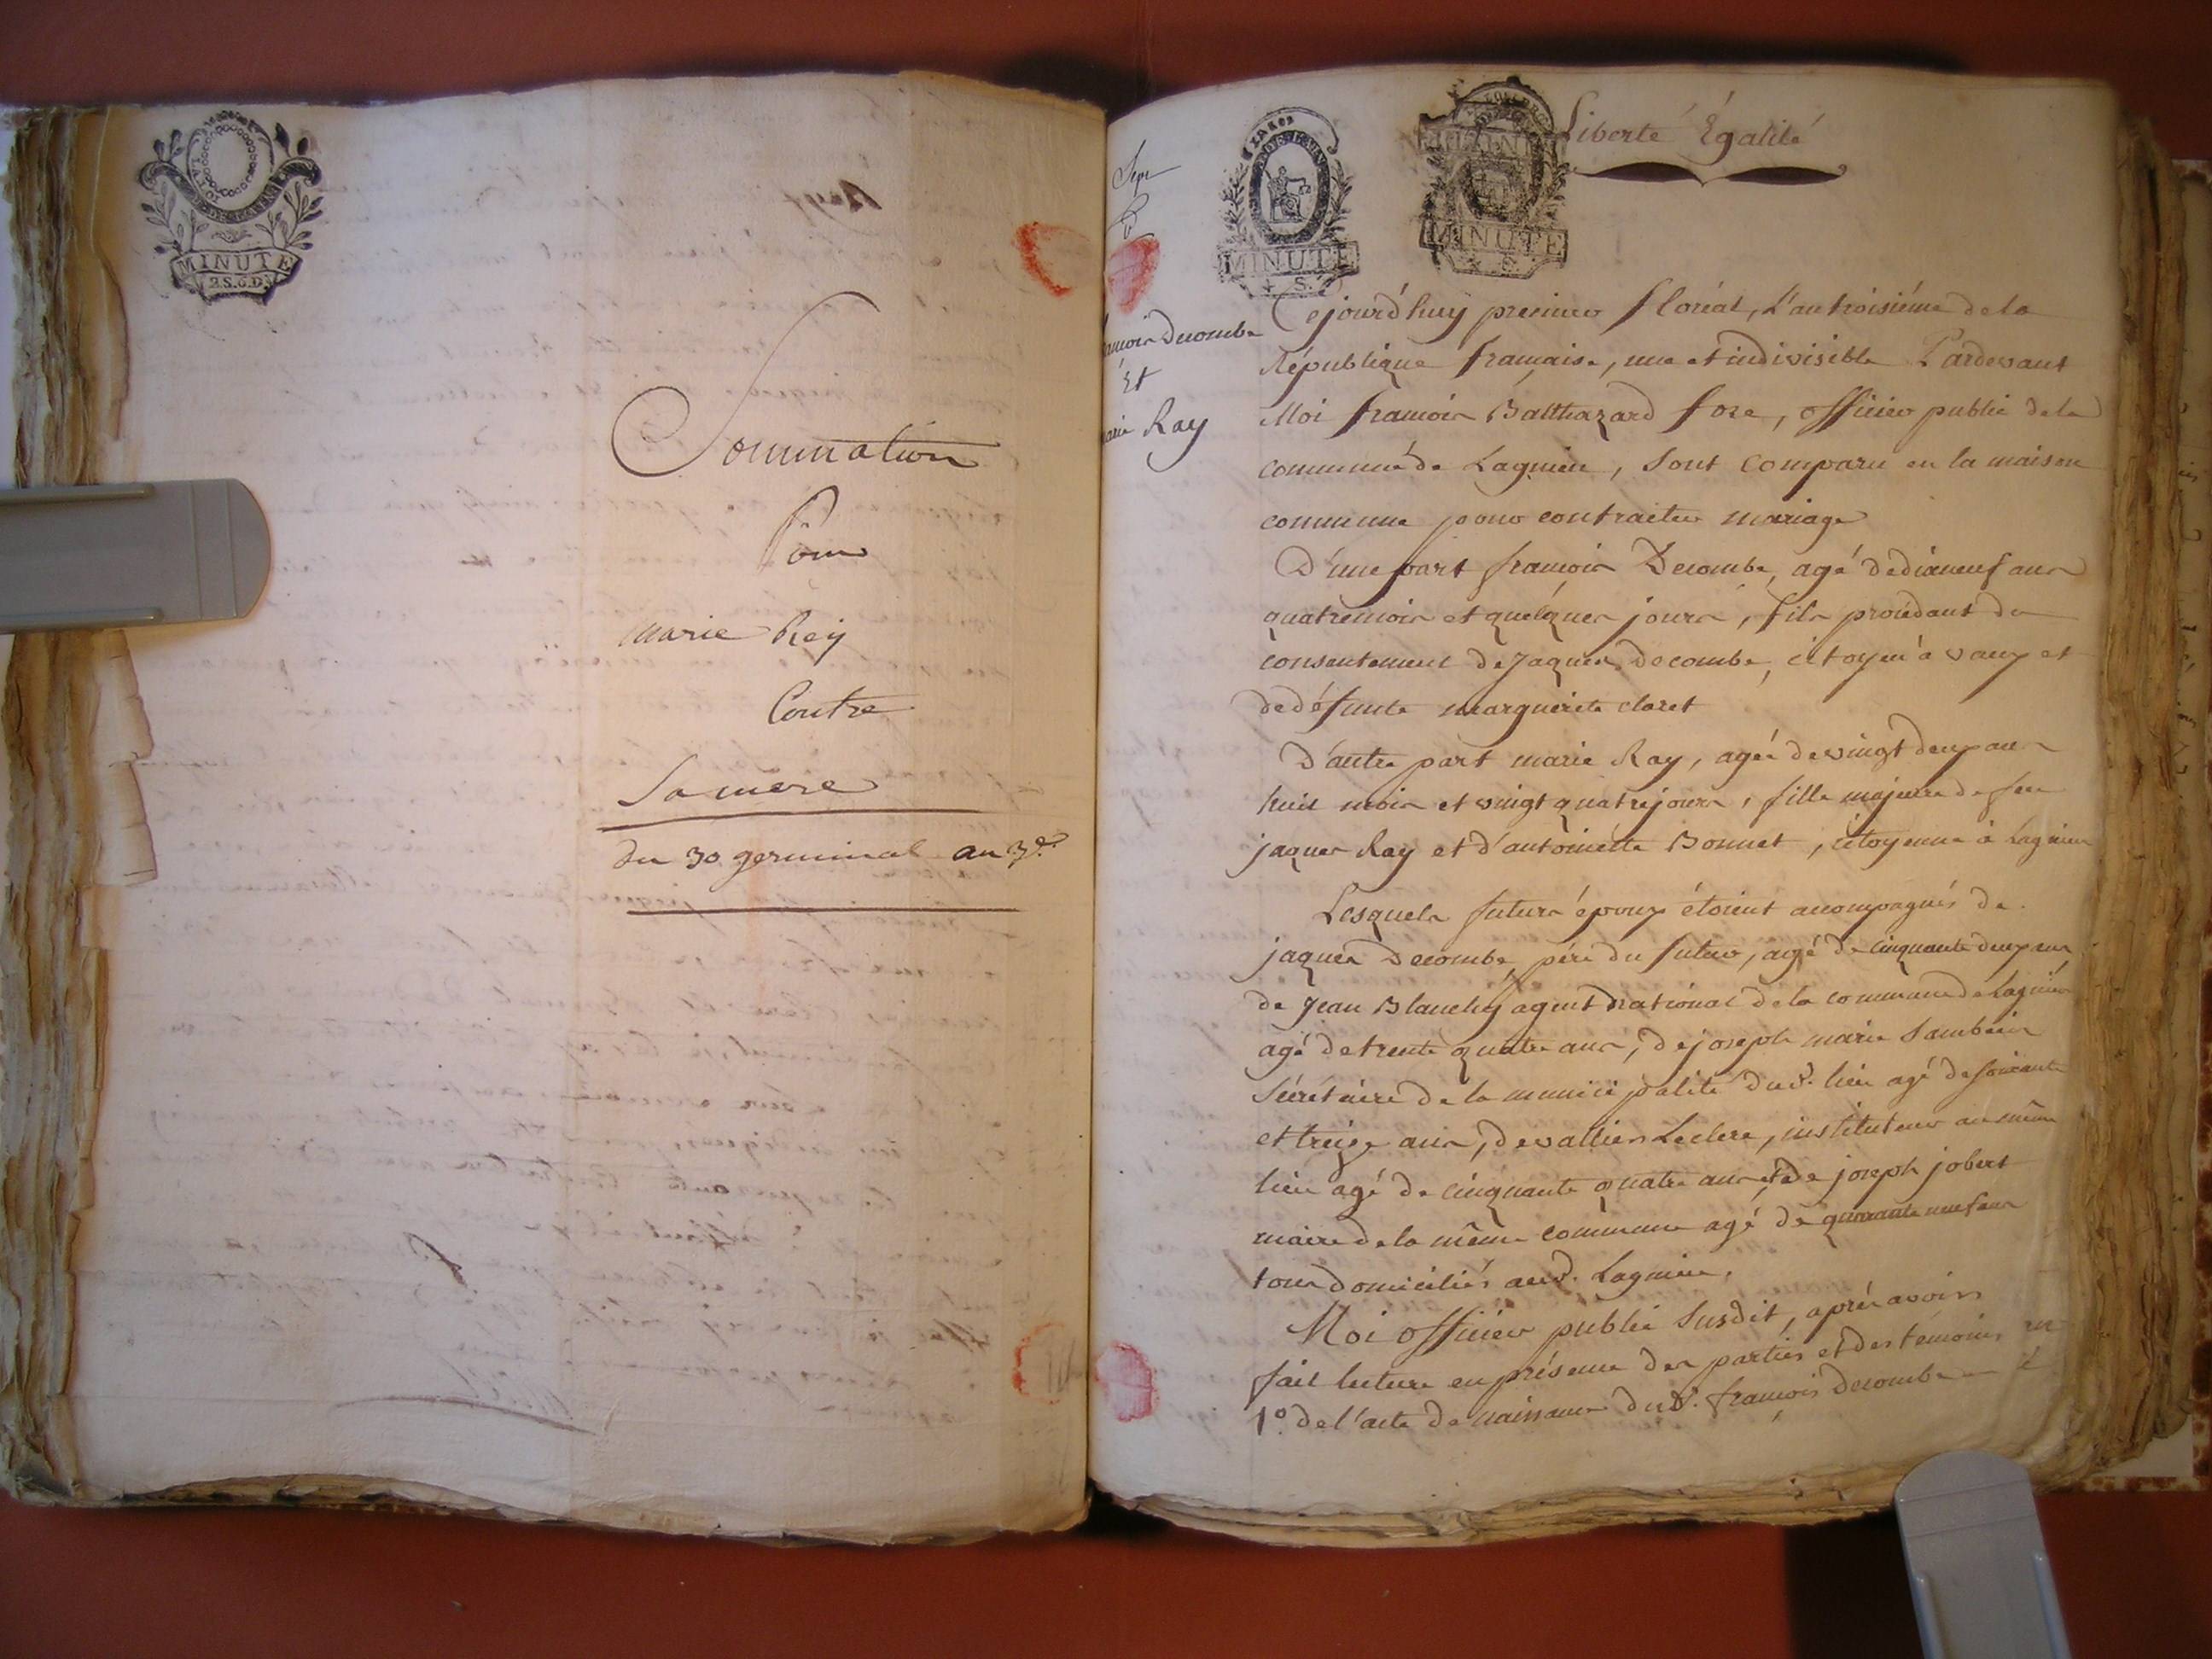 MINUTE
2.S.6.D.
Sommation
Pour
marie Rey
Contre
Sa mere
du 30 germinal an 3e.
MINUTE
MINUTE
Liberté Égalité
ancois Decombe
Et
arie Ray
Cejourd'huy premier floréal, l'an troisiéme de la
République française, une et indivisible Pardevant
Moi francois Balthazard fore, officier public de la
commune de Lagnieu, sont comparu en la maison
commune pour contracter mariage
D'une part francois Decombe, agé de dixneuf ans
quatre mois et quelques jours, fils procédant du
consentement de Jaques decombe, citoyen à vaux et
de défunte marguerite claret
D'autre part marie Ray, agée de vingt deux ans
huit mois et vingt quatre jours, fille majeure de feu
jaques Ray et d'antoinette Bonnet, citoyenne à Lagnieu
Lesquels futurs époux étoient accompagnés de
jaques Decombe, pére du futur, agé de cinquante deux ans
de Jean Blanchy agent national de la commune de Lagnieu
agé de trente quatre ans, de joseph marie Sambuin
Sécrétaire de la municipalité dud. lieu agé de soixante
et treize ans, de vallier Leclerc, instituteur au même
lieu agé de cinquante quatre ans et de joseph jobert
maire de la même commune agé de quarante neuf ans
tous domiciliés aud. Lagnieu.
Moi officier public susdit, aprés avoir
fait lecture en présence des parties et des témoins
1.º de l'acte de naissance dud. francois decombe en